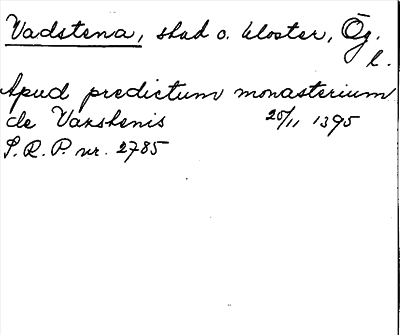 Vadstena, stad o. kloster, Ög.
l.
Apud predictum monasterium
de Vaxstenis 20/11 1395
S.R.P. nr. 2785